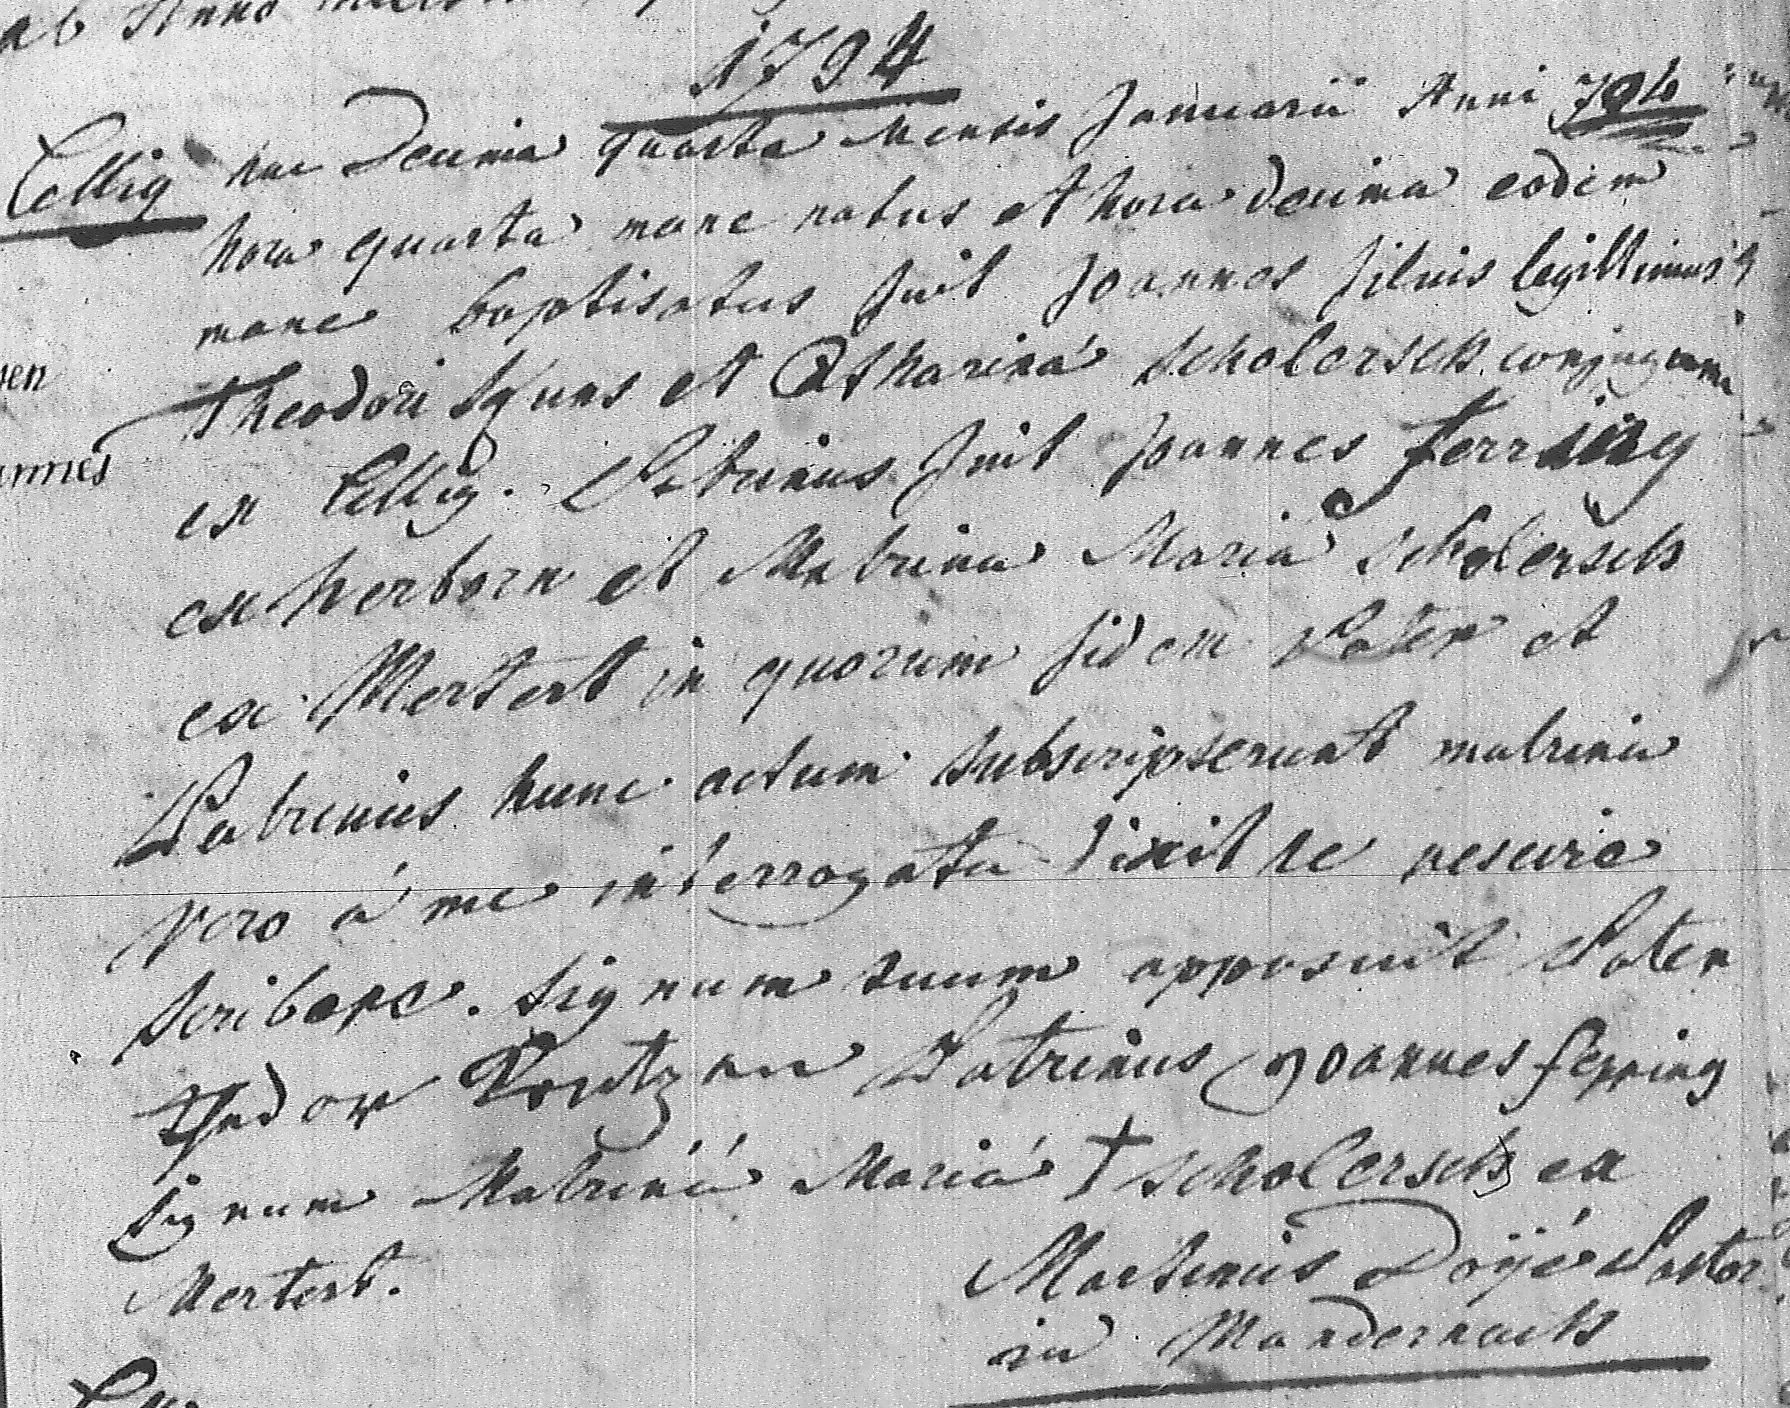 ab Anno
1794
Cellig hac Decima quarta Mensis Januarii Anni 794
hora quarta mane natus et hora decima eodem
mane baptisatus fuit Joannes filius legittimus
Theodori et Catharina Scholersch conjugum
ex Cellig. Patrinus fuit Joannes ferring
ex herborn et Matrina Maria Scholersch
ex Mertert in quorum fidem Pater et
Patrinus hunc actum subscripserunt matrina
vero á me interrogata dixit se nescire
scribere. Signum suum apposuit Pater
Patrinus Joannes ferring
Signum Matriná Mariá † Scholersch ex
Mertert.
Martinus Pastor
in Mandernach